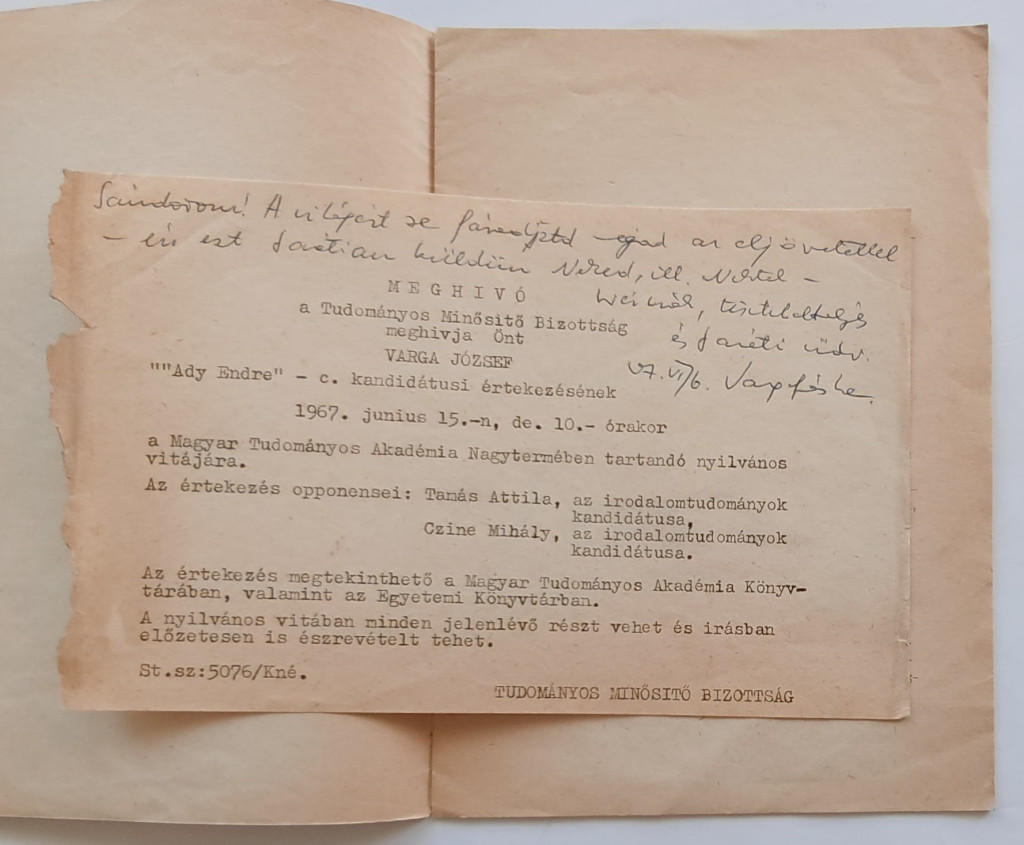 Sándorom! A világért se fáraszd magad az eljövetellel
– én ezt barátian küldöm Neked, ill. Nektek –
M E G H I V Ó
a Tudományos Minősitő Bizottság
meghivja Önt
tisztelettel
és baráti üdv.
VARGA JÓZSEF
""Ady Endre" - c. kandidátusi értekezésének
67. VI/6.
1967. junius 15.-n, de. 10.- órakor
a Magyar Tudományos Akadémia Nagytermében tartandó nyilvános
vitájára.
Az értekezés opponensei: Tamás Attila, az irodalomtudományok
kandidátusa,
Czine Mihály, az irodalomtudományok
kandidátusa.
Az értekezés megtekinthető a Magyar Tudományos Akadémia Könyv-
tárában, valamint az Egyetemi Könyvtárban.
A nyilvános vitában minden jelenlévő részt vehet és irásban
előzetesen is észrevételt tehet.
St.sz:5076/Kné.
TUDOMÁNYOS MINŐSITŐ BIZOTTSÁG